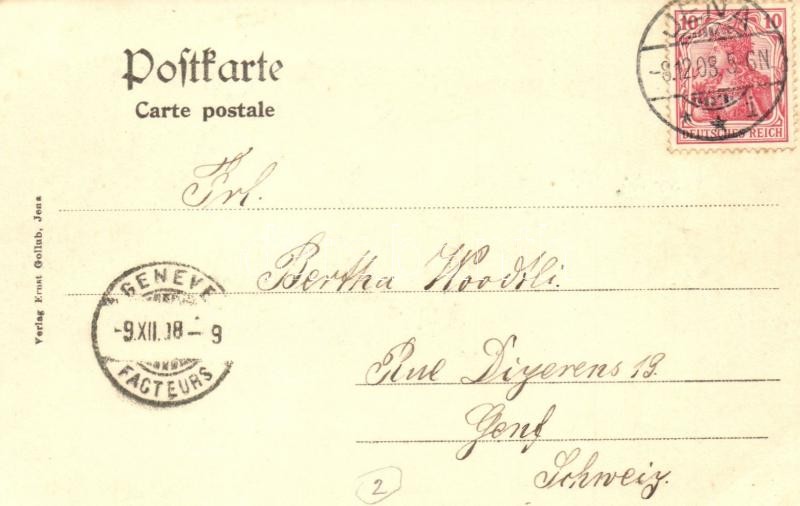 Postkarte
Carte postale
10 10
DEUTSCHES REICH
JENA
-8.12.08. 5-6N
1
Frl.
Bertha Woodtli.
Rue Dizerens 19.
Genf
Schweiz.
Verlag Ernst Gollub, Jena
GENEVE
-9.XII.08-9
FACTEURS
2